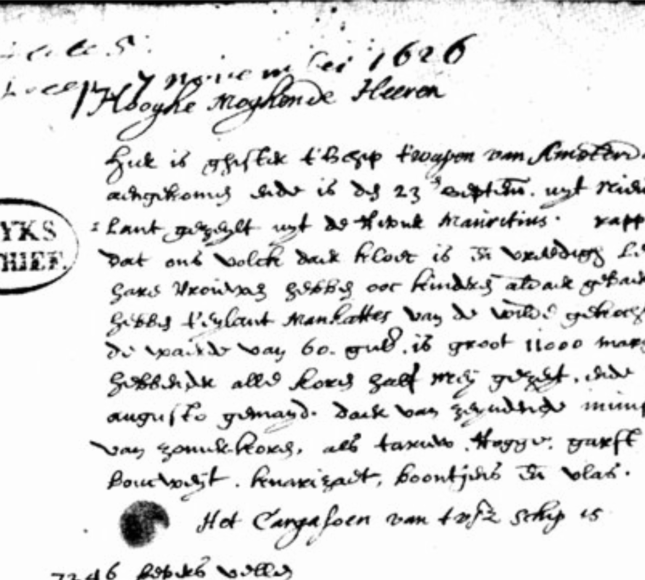 7 novemb. 1626
Hooghe Moghende Heeren
Hier is ghister t'Schip t'wapen van Amsterd
aengekomen ende is den 23en septem. uyt Nieu
Lant gezeylt uyt de Rivier Mauritius. rapp
YKS
HIEF.
dat ons volck daer kloec is en vreedigh le
hare vrouwen hebben ooc kinders aldaer gebaer
hebben t'eylant Manhattes van de wilde gekoch
de waerde van 60. guld. is groot 11000 morg
hebbende alle koren half Meij gezeyt. ende
augusto gemayd. daer van zeyndende muns
van zomerkoren, als tarruw. Rogge. garst
boucweyt. knarizaet, boontjens en vlas.
Het Cargasoen van tvsz schip is
7246 bevers vellen